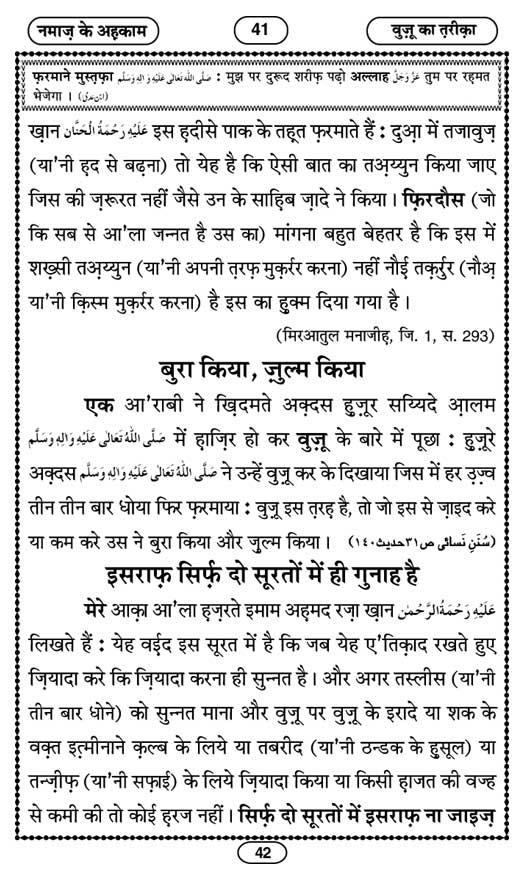 नमाज़ के अहकाम
41
वुज़ू का तरीक़ा
फ़रमाने मुस्तफ़ा صَلَّى اللهُ تَعَالٰى عَلَيْهِ وَاٰلِهٖ وَسَلَّم : मुझ पर दुरूद शरीफ़ पढ़ो अल्लाह عَزَّوَجَلَّ तुम पर रहमत
भेजेगा । (ابن عدی)
ख़ान عَلَيْهِ رَحْمَةُ الْحَنَّان इस हदीसे पाक के तहूत फ़रमाते हैं : दुआ़ में तजावुज़
(या'नी हद से बढ़ना) तो येह है कि ऐसी बात का तअ़य्युन किया जाए
जिस की ज़रूरत नहीं जैसे उन के साहिब ज़ादे ने किया । फ़िरदौस (जो
कि सब से आ'ला जन्नत है उस का) मांगना बहुत बेहतर है कि इस में
शख़्सी तअ़य्युन (या'नी अपनी त़रफ़ मुक़र्रर करना) नहीं नौई़ तक़र्रुर (नौअ़
या'नी क़िस्म मुक़र्रर करना) है इस का हुक्म दिया गया है ।
(मिरआतुल मनाजीह, जि. 1, स. 293)
बुरा किया, ज़ुल्म किया
एक आ'राबी ने ख़िदमते अक़्दस हुज़ूर सय्यिदे आ़लम
صَلَّى اللهُ تَعَالٰى عَلَيْهِ وَاٰلِهٖ وَسَلَّم में ह़ाज़िर हो कर वुज़ू के बारे में पूछा : हुज़ूरे
अक़्दस صَلَّى اللهُ تَعَالٰى عَلَيْهِ وَاٰلِهٖ وَسَلَّم ने उन्हें वुज़ू कर के दिखाया जिस में हर उ़ज़्व
तीन तीन बार धोया फिर फ़रमाया : वुज़ू इस त़रह़ है, तो जो इस से ज़ाइद करे
या कम करे उस ने बुरा किया और ज़ुल्म किया । (سُنَنِ نَسائی ص۳۱حدیث۱٤۰)
इसराफ़ सिर्फ़ दो सूरतों में ही गुनाह है
मेरे आक़ा आ'ला ह़ज़रते इमाम अह़मद रज़ा ख़ान عَلَيْهِ رَحْمَةُ الرَّحْمٰن
लिखते हैं : येह वई़द इस सूरत में है कि जब येह ए'तिक़ाद रखते हुए
ज़ियादा करे कि ज़ियादा करना ही सुन्नत है । और अगर तस्लीस (या'नी
तीन बार धोने) को सुन्नत माना और वुज़ू पर वुज़ू के इरादे या शक के
वक़्त इत़्मीनाने क़ल्ब के लिये या तबरीद (या'नी ठन्डक के हुसूल) या
तन्ज़ीफ़ (या'नी सफ़ाई) के लिये ज़ियादा किया या किसी हाजत की वज्ह
से कमी की तो कोई हरज नहीं । सिर्फ़ दो सूरतों में इसराफ़ ना जाइज़
42